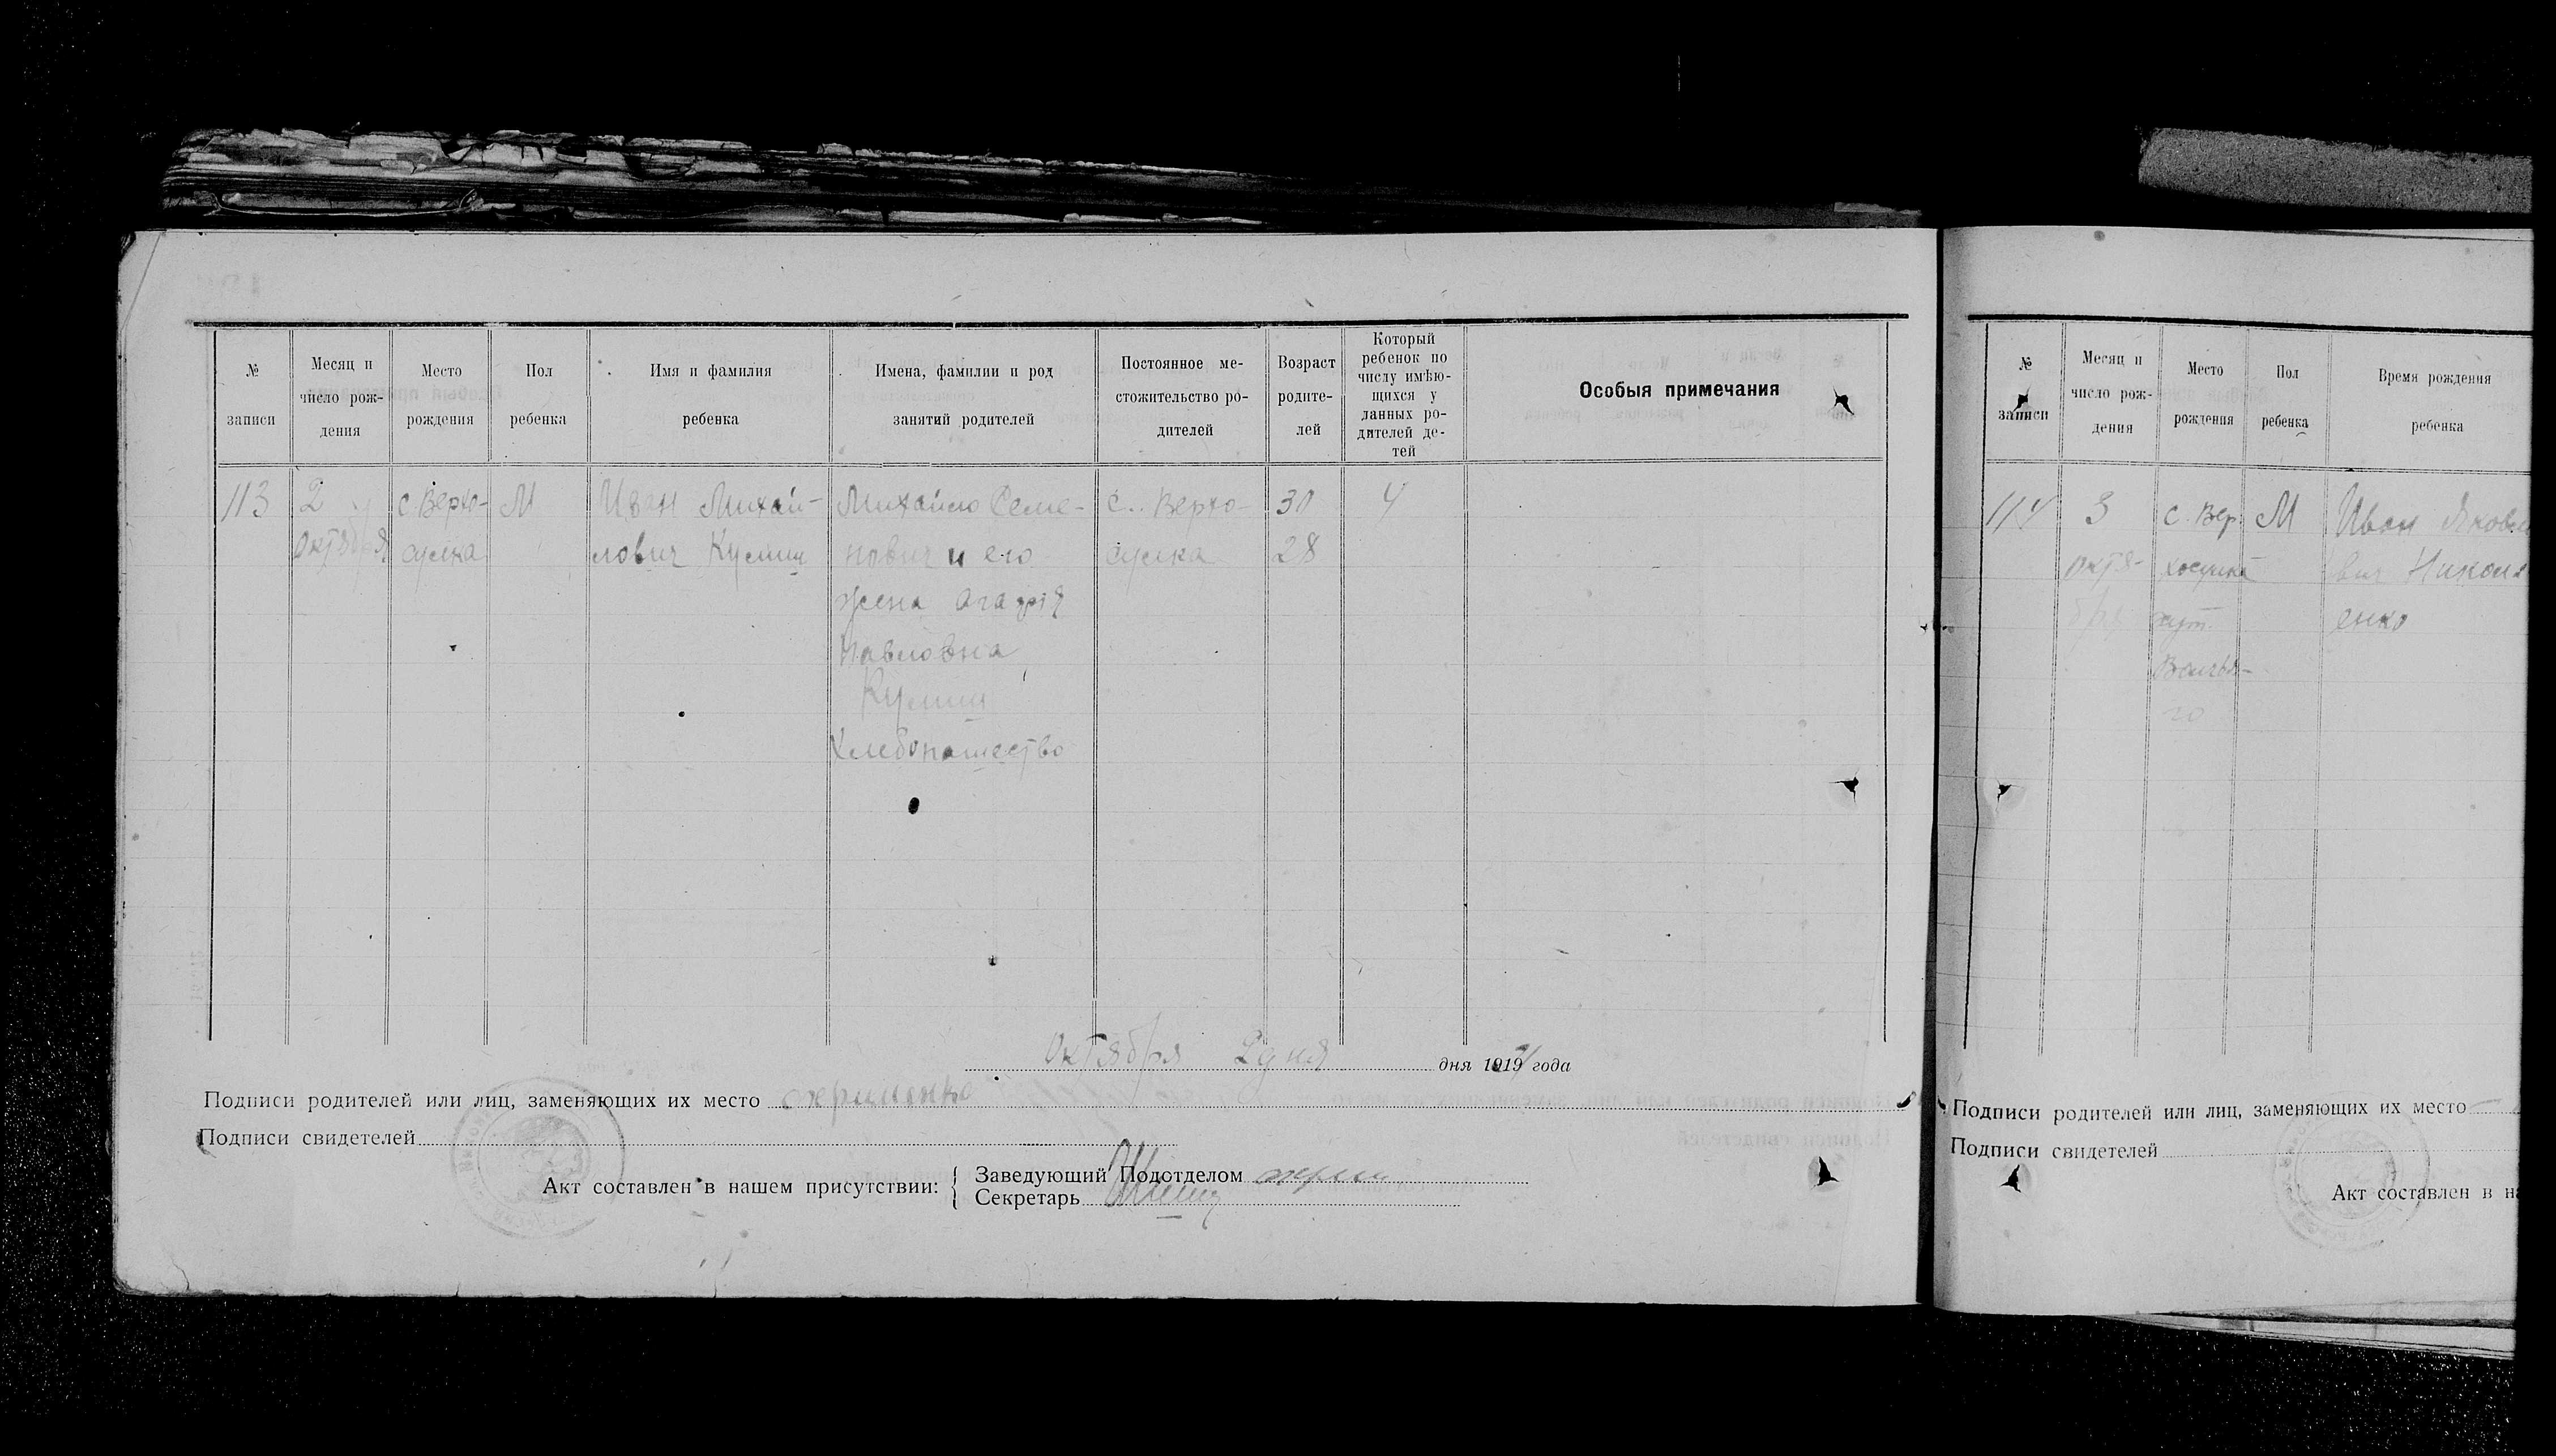 № записи
Месяц и число рож-дения
Место рождения
Пол ребенка
Имя и фамилия ребенка
Имена, фамилии и род занятий родителей
Постоянное ме-стожительство ро-дителей
Возраст родите-лей
Который ребенок по числу имѣю-щихся у данных ро-дителей де-тей
Особыя примечания
113 2 с. Верхо- М Иван Михай- Михайло Семе- с. Верхо- 30 4
октября сулка лович Кулиш нович и его сулка 28
жена Агафія
Павловна
Кулиш
Хлебопашество
Октября 2 дня дня 1919 года
Подписи родителей или лиц, заменяющих их место
Подписи свидетелей
Акт составлен в нашем присутствии:
Заведующий Подотделом
Секретарь
№ записи
Месяц и число рож-дения
Место рождения
Пол ребенка
Время рождения ребенка
114 3 с. Вер М Иван Яковл
октя- хосулка вич Никол
бря хут. енко
го
Подписи родителей или лиц, заменяющих их место
Подписи свидетелей
Акт составлен в н